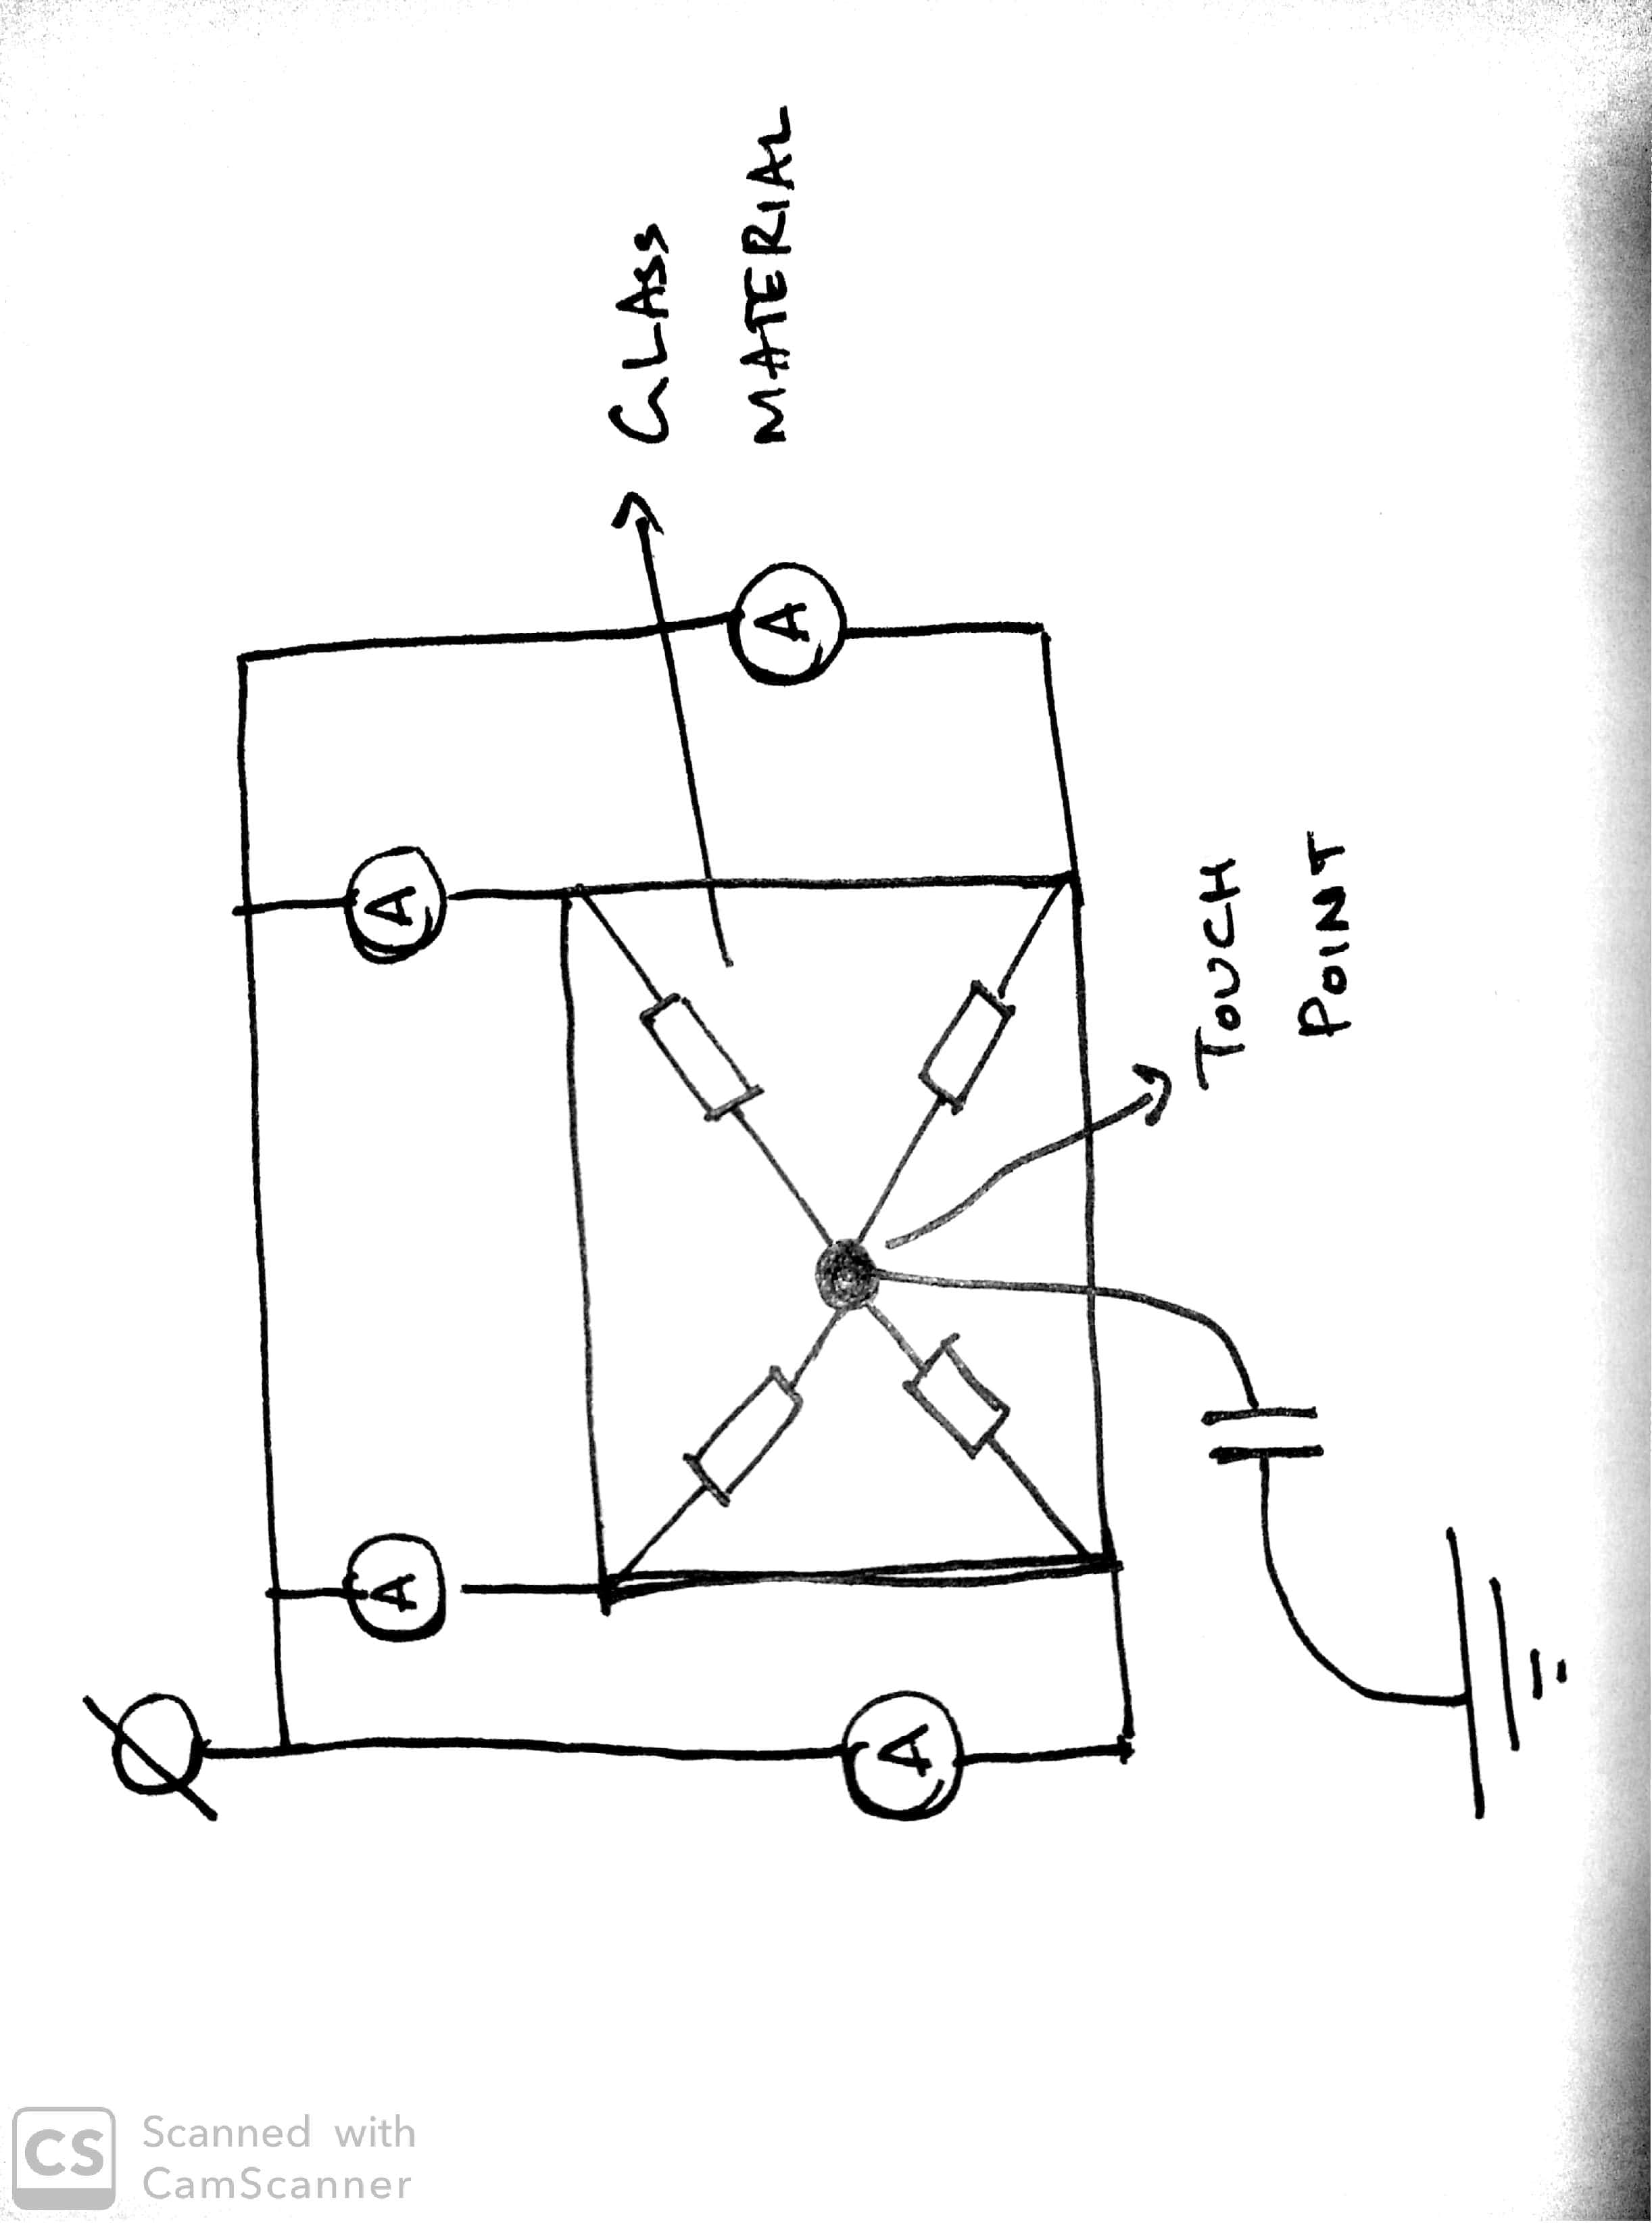 GLASS
MATERIAL
A
A
A
A
TOUCH
POINT
CS
Scanned with
CamScanner